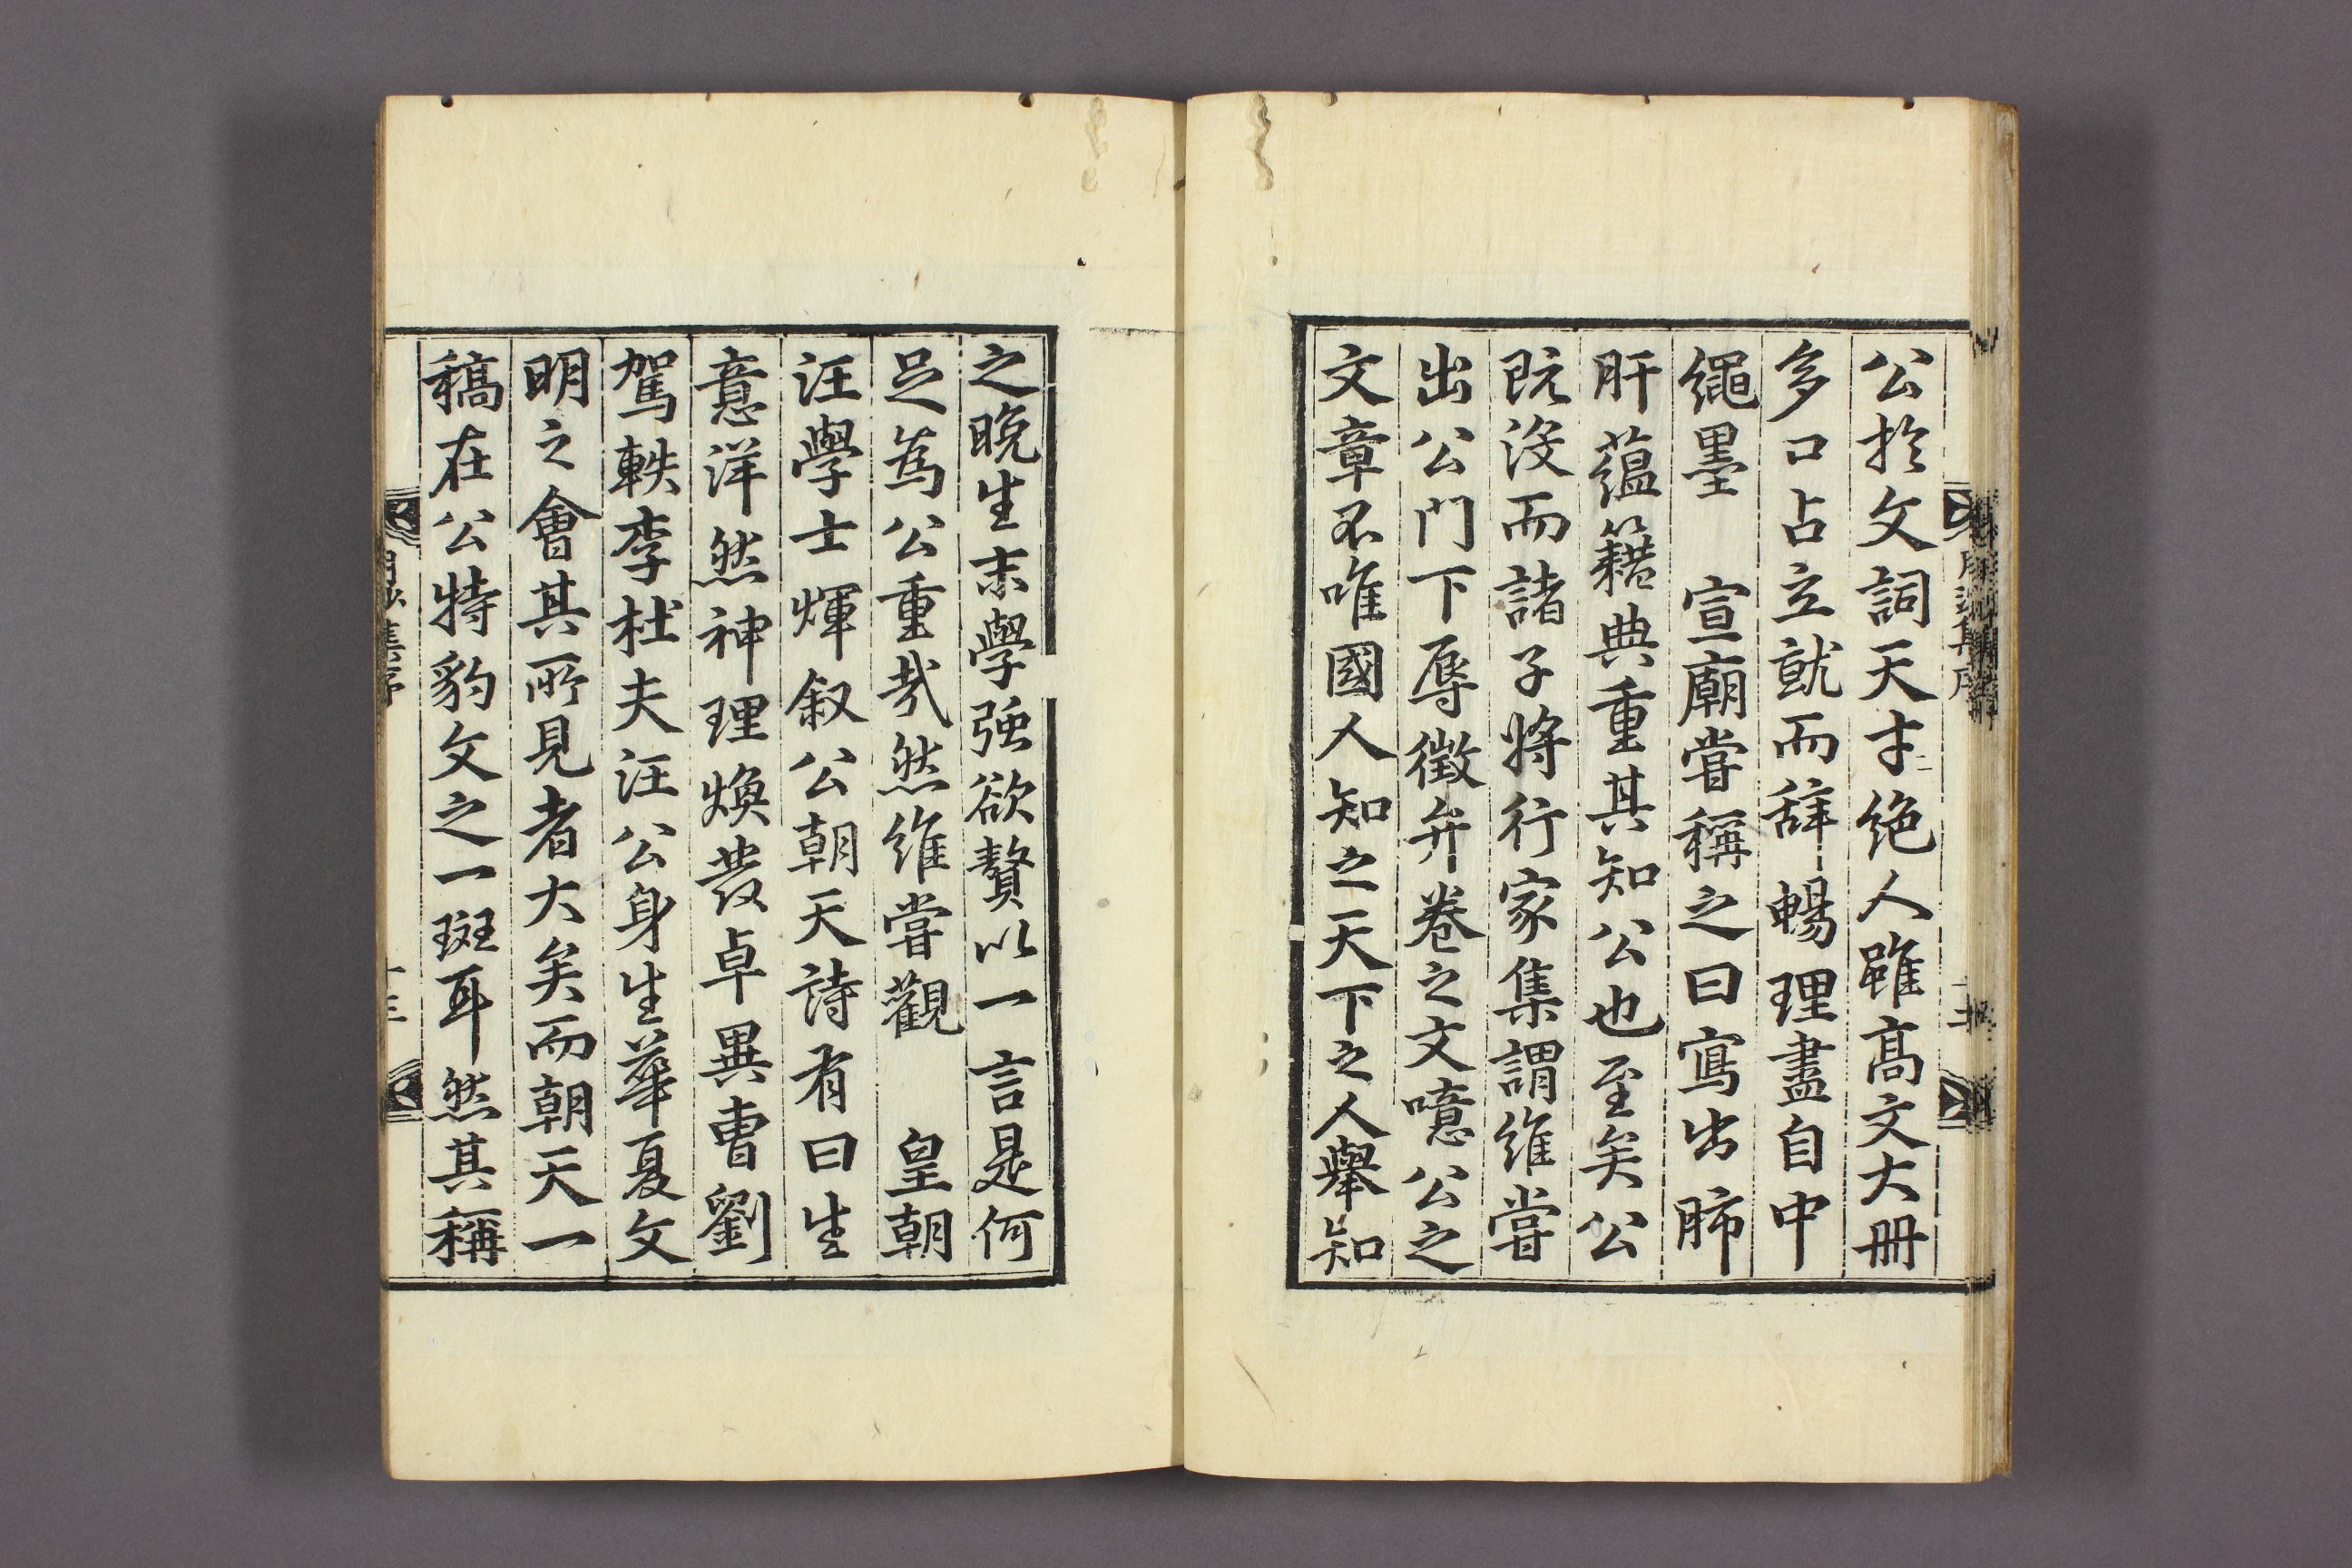 公於文詞天才絶人雖高文大冊
多口占立就而辞暢理盡自中
繩墨　宣廟嘗稱之曰寫出肺
肝蘊籍典重其知公也至矣公
既沒而諸子將行家集謂維嘗
出公門下辱徵弁卷之文噫公之
文章不唯國人知之天下之人擧知
之晩生末學強欲贅以一言是何
足為公重㢤然維嘗觀　皇朝
汪學士煇叙公朝天詩有曰生
意洋然神理煥發卓異曺劉
駕軼李杜夫汪公身生華夏文
明之會其所見者大矣而朝天一
稿在公特豹文之一斑耳然其稱